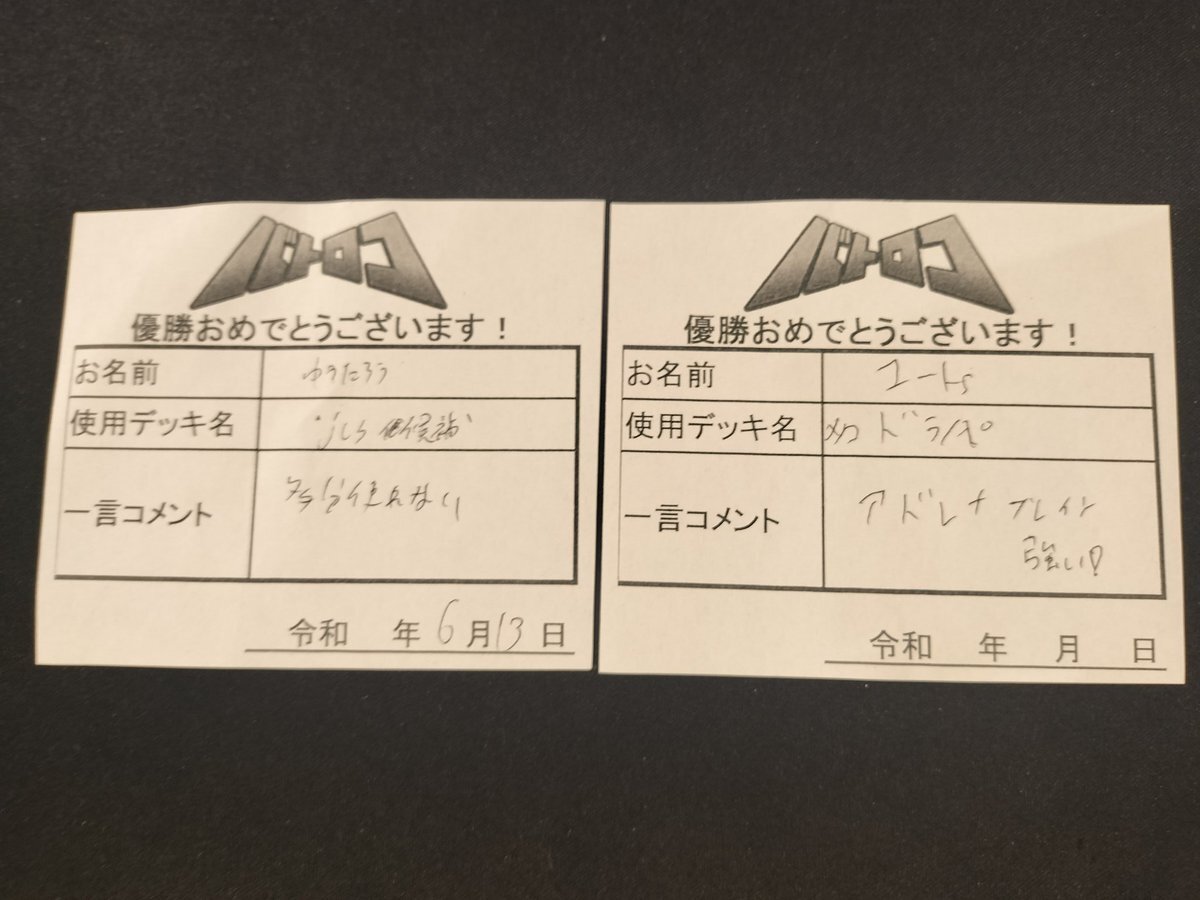 バトロコ
優勝おめでとうございます！
お名前 ゆうたろう
使用デッキ名 "jcs 候補"
一言コメント 多分使れない
令和 年 6月13日
バトロコ
優勝おめでとうございます！
お名前 ユート
使用デッキ名 メカ ドラパ
一言コメント アドレナブレイン
強い!
令和 年 月 日